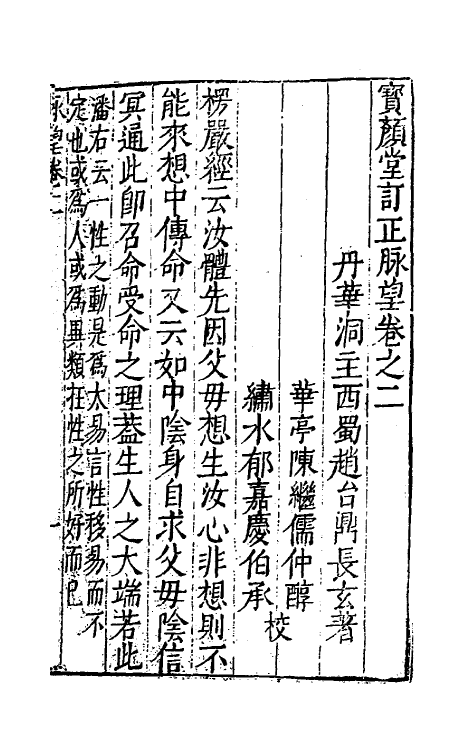 寶顏堂訂正脉望卷之二
丹華洞主西蜀趙台鼎長玄著
華亭陳繼儒仲醇
繡水郁嘉慶伯承
校
楞嚴經云汝體先因父母想生汝心非想則不
能來想中傳命又云如中陰身自求父母陰信
冥通此卽召命受命之理葢生人之大端若此
潘右云一性之動是爲太易言性移易而不
定也或爲人或爲異類在性之所好而已
脉望卷二
一